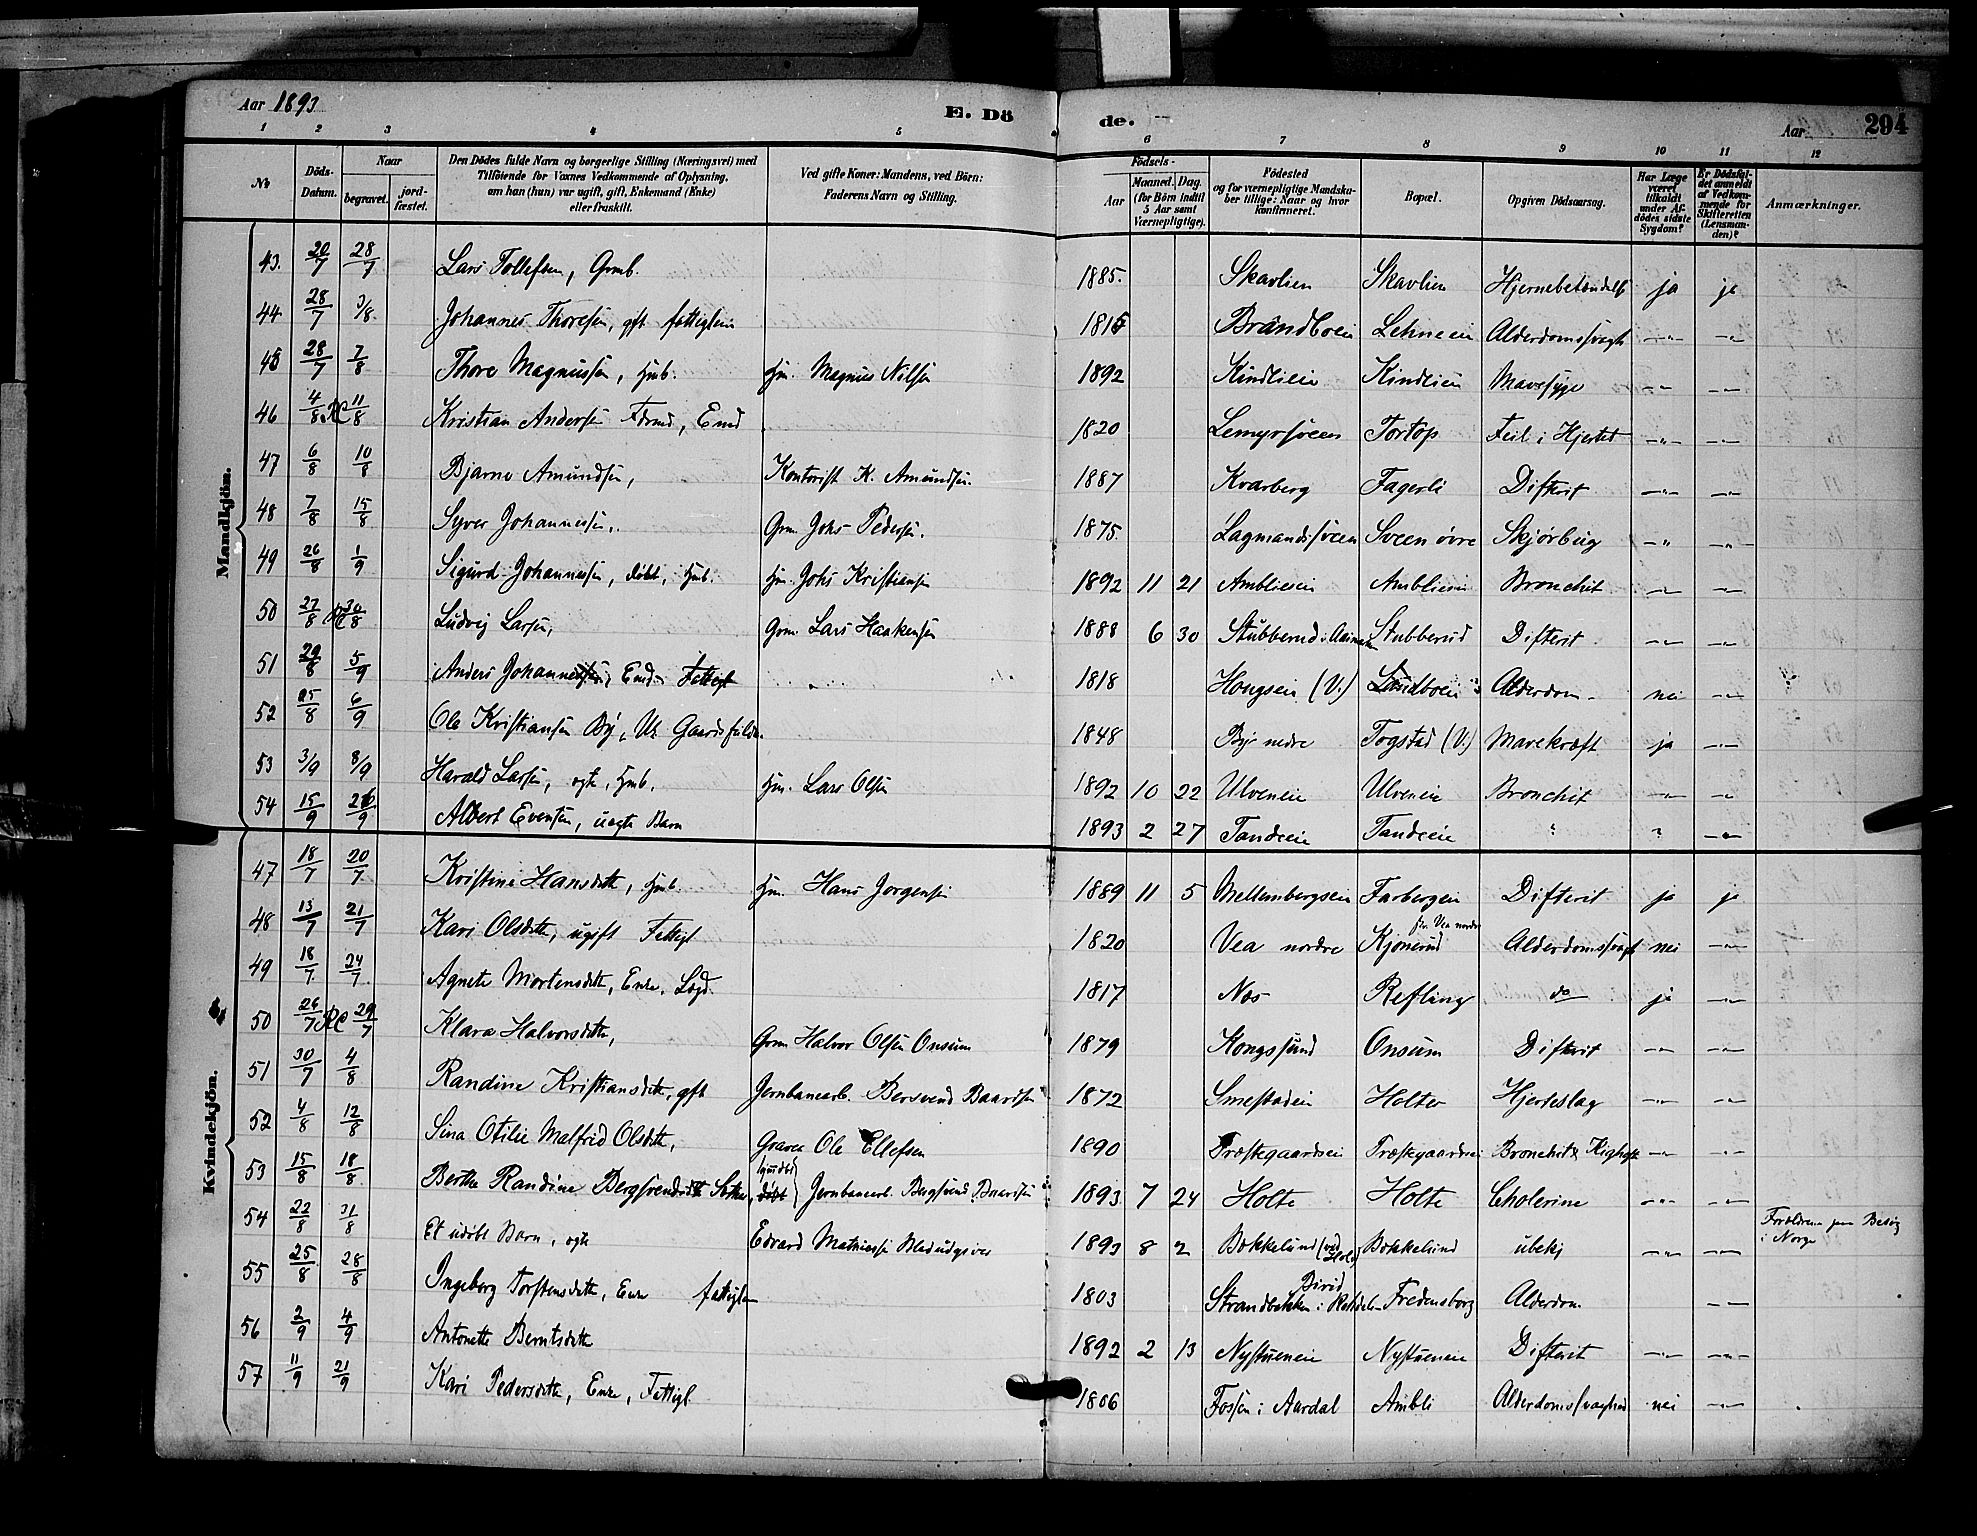 Aar 1893
E. Döde.
Aar 294
1 2 3 4 5 6 7 8 9 10 11 12
No
Döds-Datum.
Naar
begravet. jord-fæstet.
Den Dödes fulde Navn og borgerlige Stilling (Næringsvei) med
Tilföiende for Voxnes Vedkommende af Oplysning,
om han (hun) var ugift, gift, Enkemand (Enke)
eller fraskilt.
Ved gifte Koner: Mandens, ved Börn:
Faderens Navn og Stilling.
Födsels-
Aar
Maaned. Dag.
(for Börn indtil
5 Aar samt
Værnepligtige).
Födested
og for værnepligtige Mandska-
ber tillige: Naar og hvor
konfirmeret.
Bopæl.
Opgiven Dödsaarsag.
Har Læge
været
tilkaldt
under Af-
dödes sidste
Sygdom?
Er Dödsfal-
det anmeldt
af Vedkom-
mende for
Skifteretten
(Lensman-
den)?
Anmærkninger.
Mandkjön.
43. 20/7 28/7 Lars Tollefsen, Grmb. 1885. Skavlien Skavlien ja ja
44 28/7 3/8 Johannes Thoresen, gft fattiglem 1815 Lehneein Alderdomssvagh —"— —"—
45 28/7 7/8 Thore Magnussen, Hmb. Hm. Magnus Nilsen 1892 Kindliein Kindliein Mavesyge —"— —"—
46 4/8 11/8 Kristian Andersen Emd 1820 Tortop Feil i Hjertet —"— —"—
47 6/8 10/8 Bjarne Amundsen, Kontorist K. Amundsen. 1887 Kvarberg Fagerli Difterit —"— —"—
48 7/8 15/8 Syver Johannessen, Grm. Johs Pedersen. 1875. Lagmandssveen Sveen övre Skjörbug —"— —"—
49 26/8 1/9 Sigurd Johannessen, döbt, Hmb. Hm. Johs Kristiansen 1892 11 21 Ambliein Ambliein Bronchit —"— —"—
50 27/8 30/8 Ludvig Larsen, Grm. Lars Haakensen 1888 6 30 Stubberud i Stubberud Difterit —"— —"—
51 29/8 5/9 Anders Johannessen, Emd Fattigl 1818 Hongsein (V.) Alderdom nei —"—
52 25/8 6/9 Ole Kristiansen By, Uk 1848 By nedre Togstad (V.) Mavekræft ja —"—
53 3/9 8/9 Harald Larsen, ægte, Hmb. Hm. Lars Olsen 1892 10 22 Ulvenein Ulvenein Bronchit —"— —"—
54 15/9 26/9 Albert Evensen, uægte Barn 1893 2 27 Tandeein Tandeein " " —"—
Kvindekjön.
47 18/7 20/7 Kristine Hansdtt, Hmb Hm. Hans Jorgensen 1889 11 5 Mellembergsein Farbergein Difterit ja ja
48 13/7 21/7 Kari Olsdtt, ugift Fattigl 1820 Vea nordre för. Vea nordre Kjonerud Alderdomssvagh nei —"—
49 18/7 24/7 Agnete Mortensdtt, Enke, Lægd. 1817 Næs Refling do ja —"—
50 26/7 29/7 Klara Halvorsdtt, Grm Halvor Olsen Onsum 1879 Kongssund Onsum Difterit —"— —"—
51 30/7 4/8 Randine Kristiansdtt, gft Jernbanearb. Bersvend Baardsen 1872 Smestadein Holter Hjerteslag —"— —"—
52 4/8 12/8 Sina Otilie Malfrid Olsdtt, Graver Ole Ellefsen 1890 Præstegaardsein Præstegaardsein Bronchit & Kighoste —"— —"—
53 15/8 18/8 Berthe Randine Bergsvendsdtt hjmdbt Jernbanearb. Bergsvend Baardsen 1893 7 24 Holte Holte Cholerine —"— —"—
54 22/8 31/8 Et udöbt Barn, ægte Edvard Mathiesen Bladudgiver 1893 8 2 Bækkelund Bækkelund ubekj —"— —"— Forældrene paa Besög i Norge
55 25/8 28/8 Ingeborg Torstensdtt, Enke fattiglem 1803 Strandbakken i Birid Fredensborg Alderdom —"—
56 2/9 4/9 Antonette Berntsdtt 1892 2 13 Nystuenein Nystuenein Difterit —"— —"—
57 11/9 21/9 Kari Pedersdtt, Enke, Fattigl. 1806 Fossen i Aardal Ambli Alderdomssvaghed nei —"—